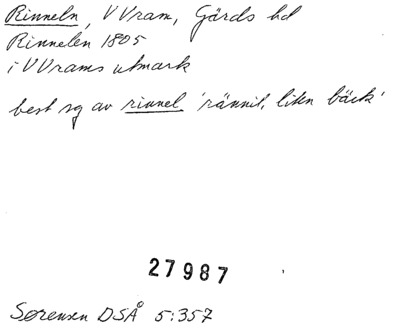 Rinneln, V Vram, Gärds hd
Rinnelen 1805
i V Vrams utmark
best sg av rinnel 'rännil, liten bäck'
27987
Sørensen DSÅ 5:357